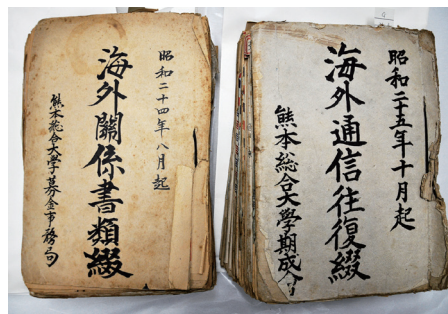 昭和二十四年八月起
海外關係書類綴
熊本総合大學募金事務局
昭和二十五年十月起
海外通信往復綴
熊本総合大學期成会